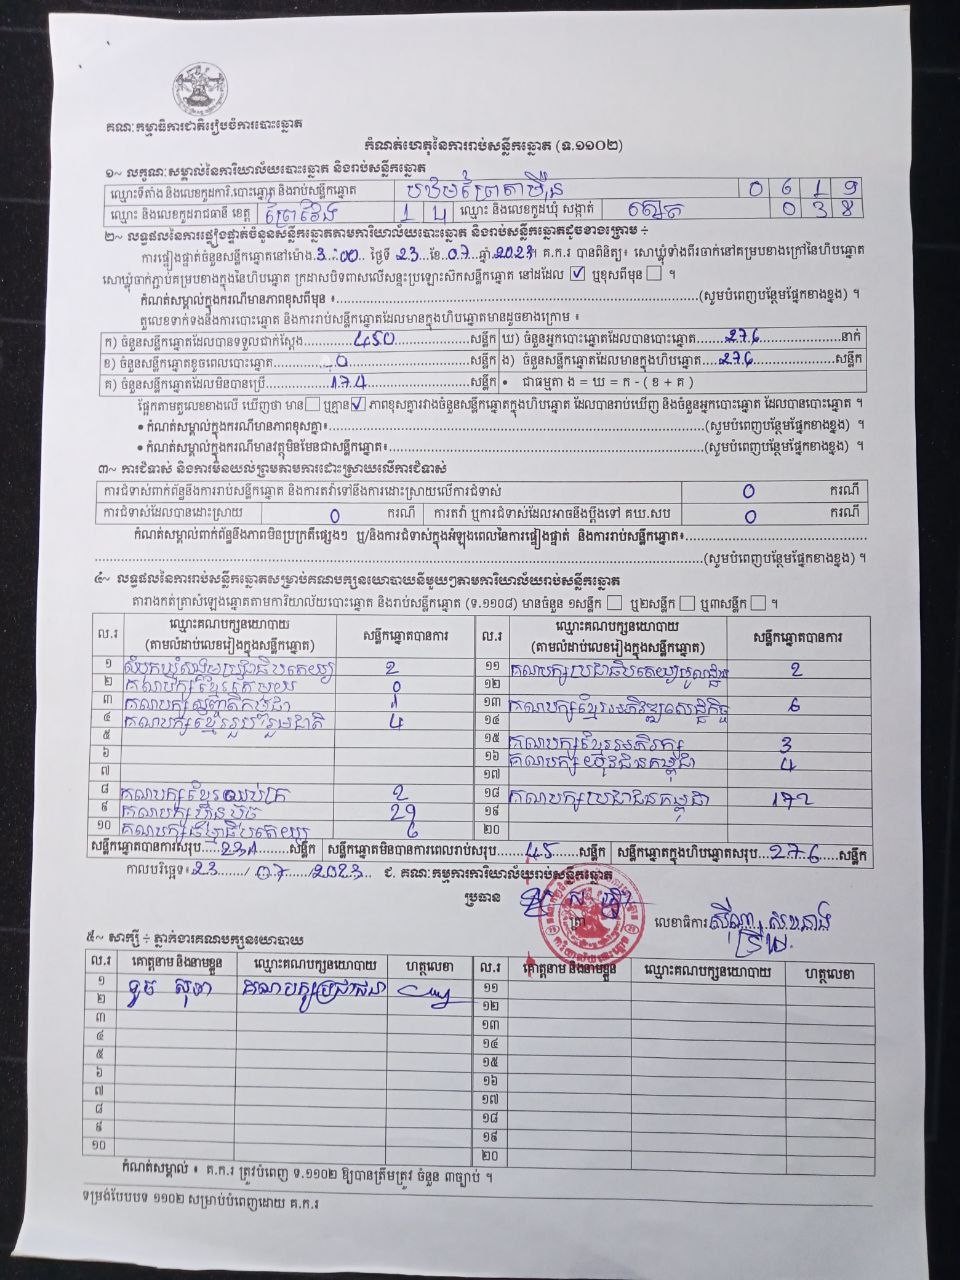 គណៈកម្មាធិការជាតិរៀបចំការបោះឆ្នោត
កំណត់ហេតុនៃការរាប់សន្លឹកឆ្នោត (ទ.១១០២)
១~ លក្ខណៈសម្គាល់នៃការិយាល័យបោះឆ្នោត និងរាប់សន្លឹកឆ្នោត
ឈ្មោះទីតាំង និងលេខកូដការិ.បោះឆ្នោត និងរាប់សន្លឹកឆ្នោត 0 6 1 9
ឈ្មោះ និងលេខកូដរាជធានី ខេត្ត ព្រៃវែង 1 4 ឈ្មោះ និងលេខកូដឃុំ សង្កាត់ 0 3 8
២~ លទ្ធផលនៃការផ្ទៀងផ្ទាត់ចំនួនសន្លឹកឆ្នោតតាមការិយាល័យបោះឆ្នោត និងរាប់សន្លឹកឆ្នោតដូចខាងក្រោម ÷
ការផ្ទៀងផ្ទាត់ចំនួនសន្លឹកឆ្នោតនៅម៉ោង 3:00 ថ្ងៃទី 23 ខែ 07 ឆ្នាំ 2023។ គ.ក.រ បានពិនិត្យ៖ សោឃ្លុំទាំងពីរចាក់នៅគម្របខាងក្រៅនៃហិបឆ្នោត
សោឃ្លុំចាក់ភ្ជាប់គម្របខាងក្នុងនៃហិបឆ្នោត ក្រដាសបិទពាសលើសន្ទះប្រឡោះស៊កសន្លឹកឆ្នោត នៅដដែល ☑ ឬខុសពីមុន ☐ ។
កំណត់សម្គាល់ក្នុងករណីមានភាពខុសពីមុន ៖ (សូមបំពេញបន្ថែមផ្នែកខាងខ្នង) ។
តួលេខទាក់ទងនឹងការបោះឆ្នោត និងការរាប់សន្លឹកឆ្នោតដែលមានក្នុងហិបឆ្នោតមានដូចខាងក្រោម ៖
ក) ចំនួនសន្លឹកឆ្នោតដែលបានទទួលជាក់ស្តែង 450 សន្លឹក ឃ) ចំនួនអ្នកបោះឆ្នោតដែលបានបោះឆ្នោត 276 នាក់
ខ) ចំនួនសន្លឹកឆ្នោតខូចពេលបោះឆ្នោត 0 សន្លឹក ង) ចំនួនសន្លឹកឆ្នោតដែលមានក្នុងហិបឆ្នោត 276 សន្លឹក
គ) ចំនួនសន្លឹកឆ្នោតដែលមិនបានប្រើ 174 សន្លឹក • ជាធម្មតា ង = ឃ = ក - ( ខ + គ )
ផ្អែកតាមតួលេខខាងលើ ឃើញថា មាន ☐ ឬគ្មាន ☑ ភាពខុសគ្នារវាងចំនួនសន្លឹកឆ្នោតក្នុងហិបឆ្នោត ដែលបានរាប់ឃើញ និងចំនួនអ្នកបោះឆ្នោត ដែលបានបោះឆ្នោត ។
• កំណត់សម្គាល់ក្នុងករណីមានភាពខុសគ្នា៖ (សូមបំពេញបន្ថែមផ្នែកខាងខ្នង) ។
• កំណត់សម្គាល់ក្នុងករណីមានវត្ថុមិនមែនជាសន្លឹកឆ្នោត៖ (សូមបំពេញបន្ថែមផ្នែកខាងខ្នង) ។
៣~ ការជំទាស់ និងការមិនយល់ព្រមតាមការដោះស្រាយលើការជំទាស់
ការជំទាស់ពាក់ព័ន្ធនឹងការរាប់សន្លឹកឆ្នោត និងការតវ៉ាទៅនឹងការដោះស្រាយលើការជំទាស់ 0 ករណី
ការជំទាស់ដែលបានដោះស្រាយ 0 ករណី ការតវ៉ា ឬការជំទាស់ដែលអាចនឹងប្តឹងទៅ គឃ.សប 0 ករណី
កំណត់សម្គាល់ពាក់ព័ន្ធនឹងភាពមិនប្រក្រតីផ្សេងៗ ឬ/និងការជំទាស់ក្នុងអំឡុងពេលនៃការផ្ទៀងផ្ទាត់ និងការរាប់សន្លឹកឆ្នោត៖
(សូមបំពេញបន្ថែមផ្នែកខាងខ្នង) ។
៤~ លទ្ធផលនៃការរាប់សន្លឹកឆ្នោតសម្រាប់គណបក្សនយោបាយនីមួយៗតាមការិយាល័យរាប់សន្លឹកឆ្នោត
តារាងកត់ត្រាសំឡេងឆ្នោតតាមការិយាល័យបោះឆ្នោត និងរាប់សន្លឹកឆ្នោត (ទ.១១០៨) មានចំនួន ១សន្លឹក ☐ ឬ២សន្លឹក ☐ ឬ៣សន្លឹក ☐ ។
ល.រ ឈ្មោះគណបក្សនយោបាយ (តាមលំដាប់លេខរៀងក្នុងសន្លឹកឆ្នោត) សន្លឹកឆ្នោតបានការ ល.រ ឈ្មោះគណបក្សនយោបាយ (តាមលំដាប់លេខរៀងក្នុងសន្លឹកឆ្នោត) សន្លឹកឆ្នោតបានការ
១ សំបុកឃ្មុំសង្គមប្រជាធិបតេយ្យ 2 ១១ គណបក្សប្រជាធិបតេយ្យមូលដ្ឋាន 2
២ គណបក្សខ្មែរតែមួយ 0 ១២
៣ 1 ១៣ គណបក្សខ្មែរអភិវឌ្ឍន៍សេដ្ឋកិច្ច 6
៤ គណបក្សខ្មែររួបរួមជាតិ 4 ១៤
៥ ១៥ គណបក្សខ្មែរអភិរក្ស 3
៦ ១៦ គណបក្សយុវជនកម្ពុជា 4
៧ ១៧
៨ គណបក្សខ្មែរឈប់ក្រ 2 ១៨ គណបក្សប្រជាជនកម្ពុជា 172
៩ 29 ១៩
១០ គណបក្សធម្មាធិបតេយ្យ 6 ២០
សន្លឹកឆ្នោតបានការសរុប 231 សន្លឹក សន្លឹកឆ្នោតមិនបានការពេលរាប់សរុប 45 សន្លឹក សន្លឹកឆ្នោតក្នុងហិបឆ្នោតសរុប 276 សន្លឹក
កាលបរិច្ឆេទ៖ 23 / 07 / 2023 ជ. គណៈកម្មការការិយាល័យរាប់សន្លឹកឆ្នោត
ប្រធាន
ត្រា លេខាធិការ
៥~ សាក្សី ÷ ភ្នាក់ងារគណបក្សនយោបាយ
ល.រ គោត្តនាម និងនាមខ្លួន ឈ្មោះគណបក្សនយោបាយ ហត្ថលេខា ល.រ គោត្តនាម និងនាមខ្លួន ឈ្មោះគណបក្សនយោបាយ ហត្ថលេខា
១ ទូច គណបក្សប្រជាជន ១១
២ ១២
៣ ១៣
៤ ១៤
៥ ១៥
៦ ១៦
៧ ១៧
៨ ១៨
៩ ១៩
១០ ២០
កំណត់សម្គាល់ ៖ គ.ក.រ ត្រូវបំពេញ ទ.១១០២ ឱ្យបានត្រឹមត្រូវ ចំនួន ៣ច្បាប់ ។
ទម្រង់បែបបទ ១១០២ សម្រាប់បំពេញដោយ គ.ក.រ